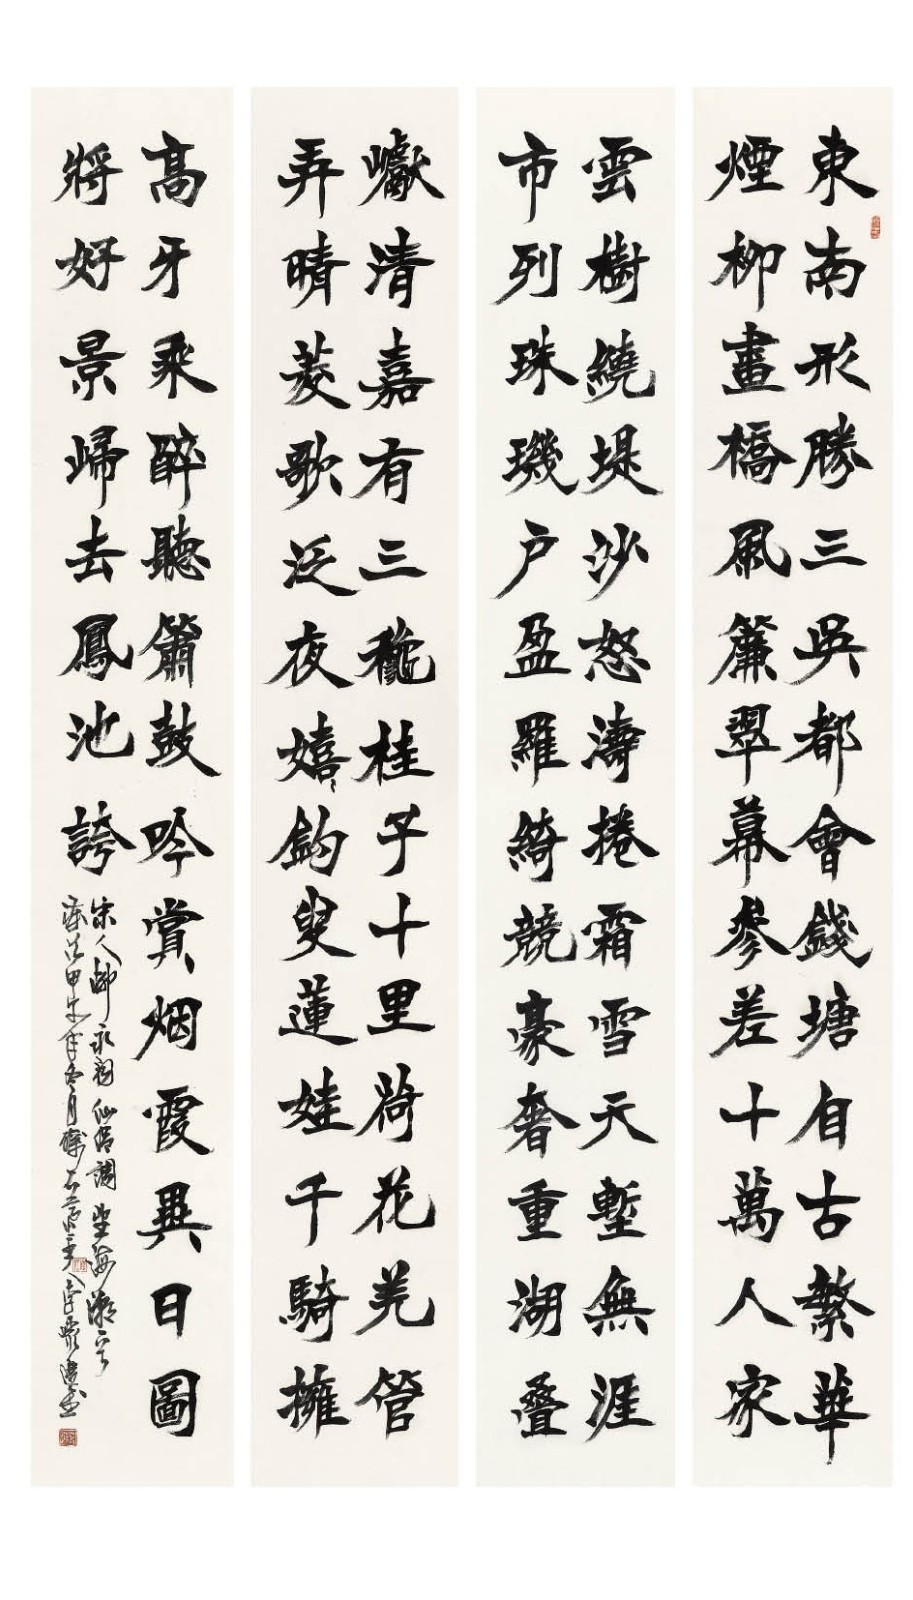 東南形勝三吳都會錢塘自古繁華
煙柳畫橋風簾翠幕參差十萬人家
雲樹繞堤沙怒濤捲霜雪天塹無涯
市列珠璣户盈羅綺競豪奢重湖叠
巘清嘉有三穐桂子十里荷花羌管
弄晴菱歌泛夜嬉〻釣叟蓮娃千騎擁
高牙乘醉聽簫鼓吟賞烟霞異日圖
將好景歸去鳳池誇
宋人柳永詞仙吕調望海潮
歲次甲午年冬月